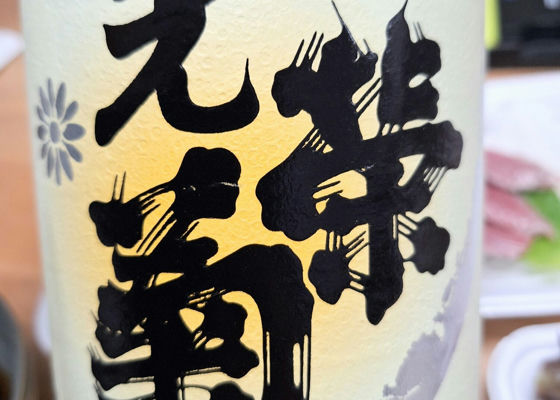 光
栄
菊